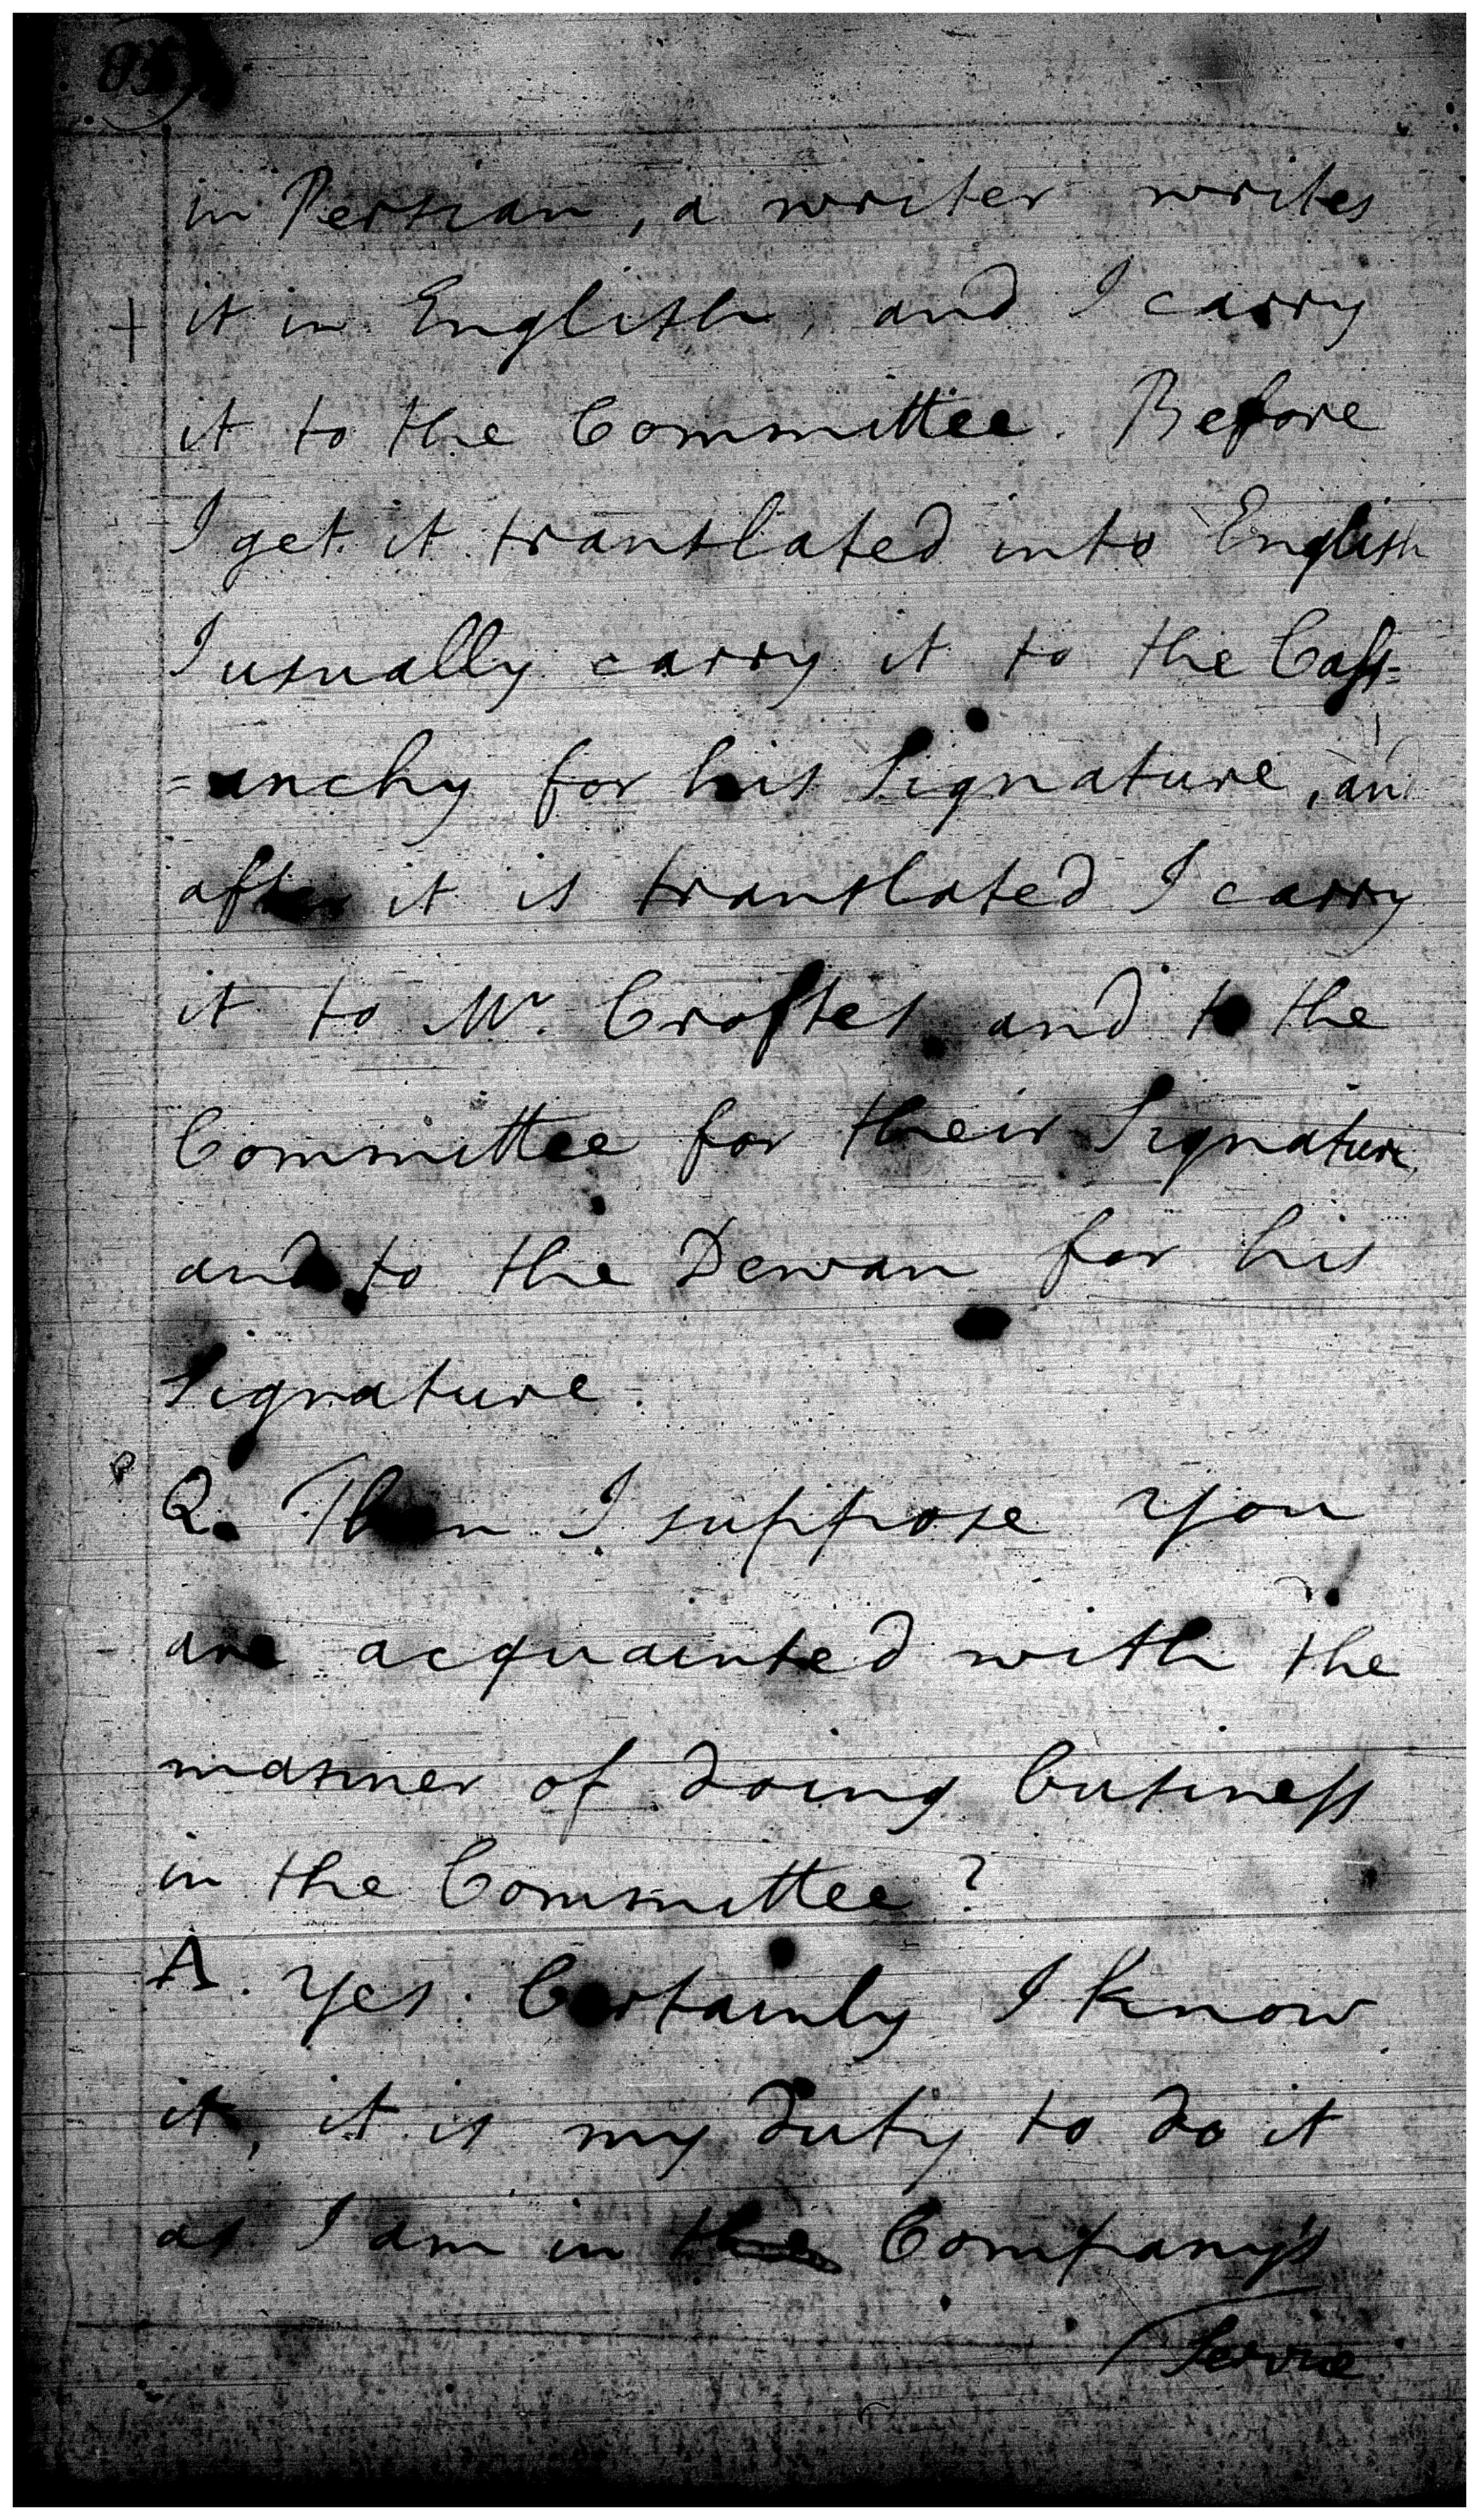 in Persian, a writer writes
+ it in English, and I carry
it to the Committee. Before
I get it translated into English
I usually carry it to the Cass=
=anchy for his Signature, an
after it is translated I carry
it to Mr. Croftes and to the
Committee for their Signature
and to the Dewan for his
Signature.
Q. Then I suppose you
are acquainted with the
manner of doing business
in the Committee?
A. Yes. Certainly I know
it, it is my duty to do it
as I am in the Company's
Service